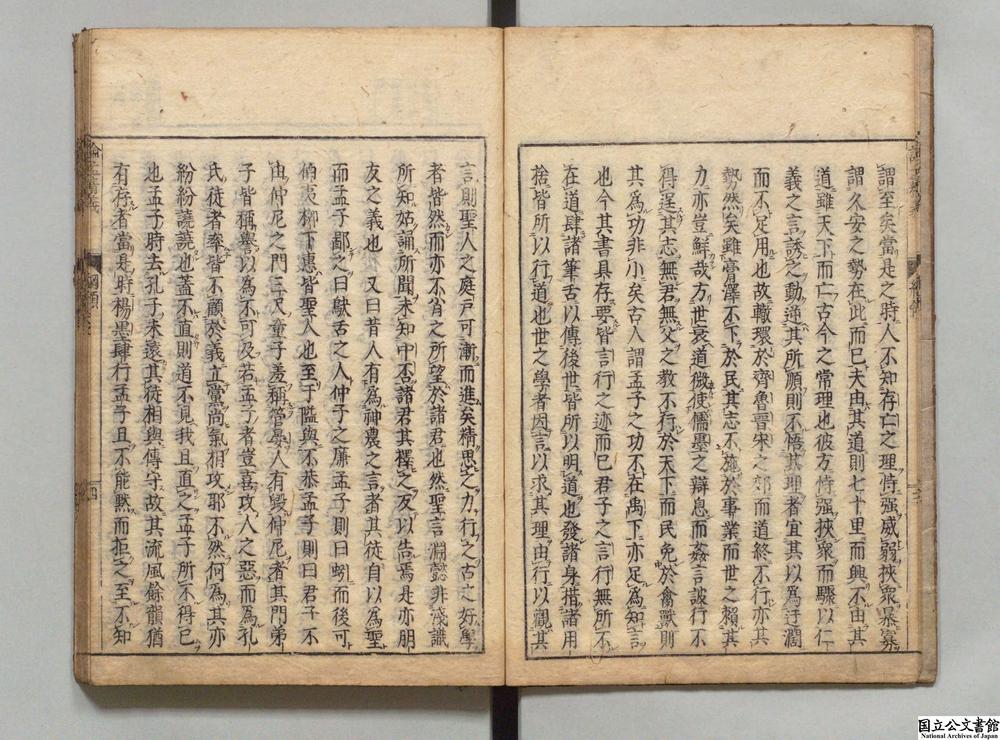 謂至矣當是之時人不知存亡之理恃强威弱挾衆暴寡
謂久安之勢在此而已夫由其道則七十里而興不由其
道雖天下而亡古今之常理也彼方恃强挾衆而驟以仁
義之言誘之動逆其所願則不悟其理者宜其以爲迂濶
而不足用也故轍環於齊魯晉宋之郊而道終不行亦其
勢然矣雖膏澤不下於民其志不施於事業而世之賴其
力亦豈鮮哉方世衰道微使儒墨之辯息而姦言詖行不
得逞其志無君無父之教不行於天下而民免於禽獸則
其爲功非小矣古人謂孟子之功不在禹下亦足爲知言
也今其書具存要皆言行之迹而已君子之言行無所不
在道肆諸筆舌以傳後世皆所以明道也發諸身措諸用
捨皆所以行道也世之學者因言以求其理由行以觀其
言則聖人之庭戸可漸而進矣精思之力行之古之好學
者皆然而亦不肖之所望於諸君也然聖言淵懿非淺識
所知姑誦所聞未知中否諸君其擇之反以告焉是亦朋
友之義也 又曰昔人有爲神農之言者其徒自以爲聖
而孟子鄙之曰鴃舌之人仲子之廉孟子則曰蚓而後可
伯夷柳下惠皆聖人也至于隘與不恭孟子則曰君子不
由仲尼之門三尺童子羞稱管晏人有毀仲尼者其門弟
子皆稱譽以為不可及若孟子者豈喜攻人之惡而為孔
氏徒者率皆不顧於義立黨尚氣相攻耶不然何為其亦
紛紛譊譊也蓋不直則道不見我且直之孟子所不得已
也孟子時去孔子未遠其徒相與傳守故其流風餘韻猶
有存者當是時楊墨肆行孟子且不能默而拒之至不知
綱領
四
国立公文書館
National Archives of Japan